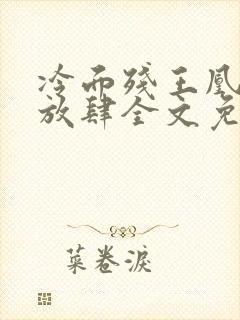 冷面残王凰
放肆全文免
菜卷淚